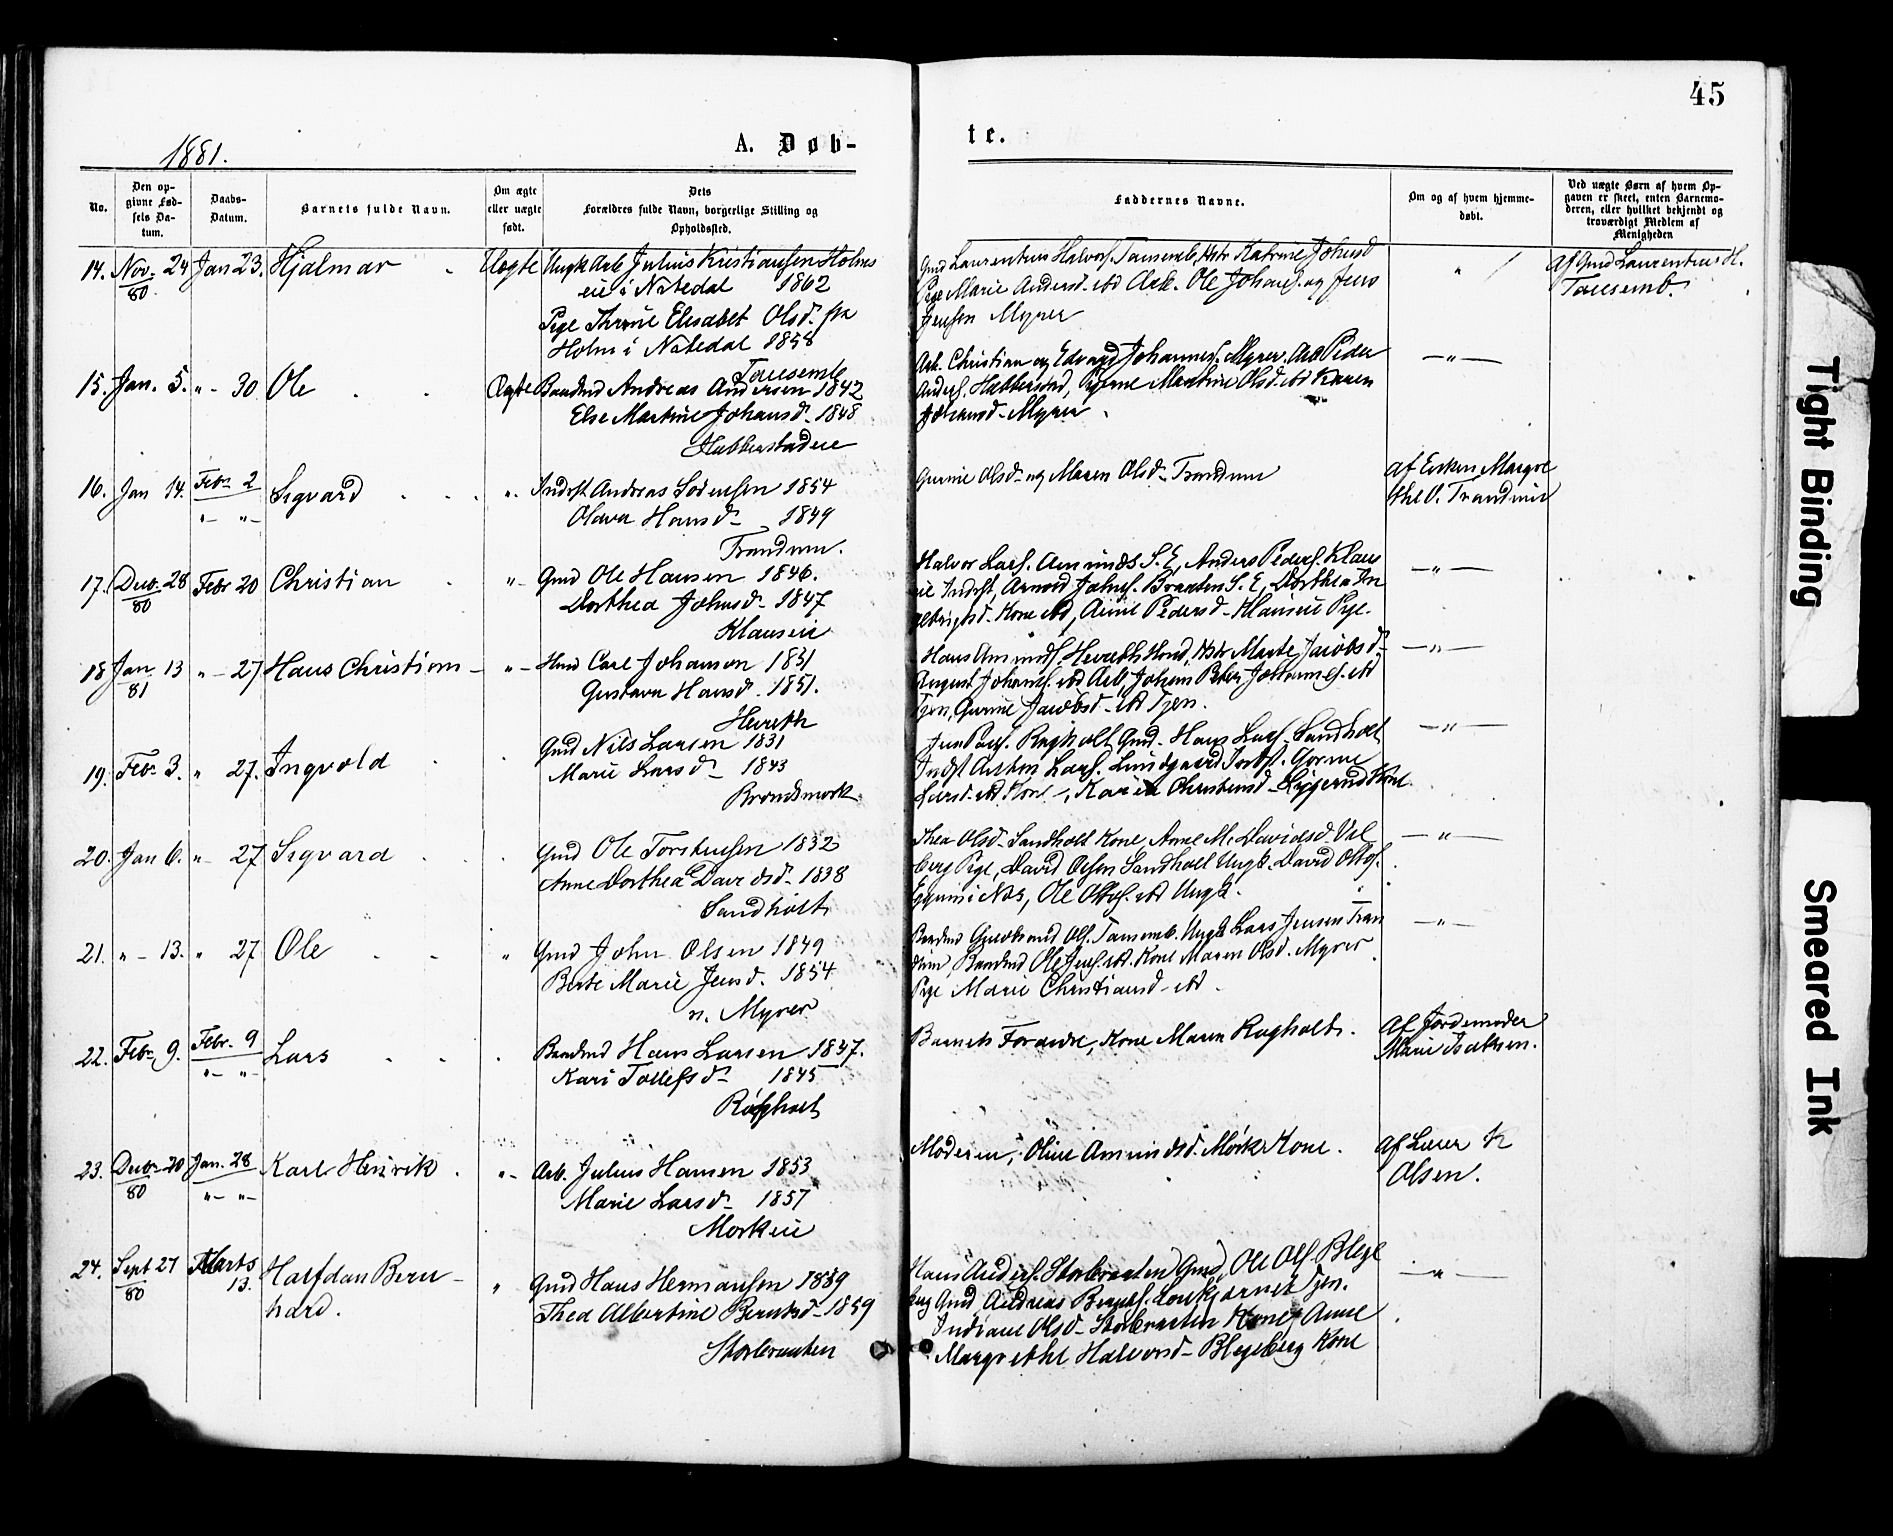 45
1881.
A. Døb-
te.
No.
Den op-
givne Fød-
sels Da-
tum.
Daabs-
Datum.
Barnets fulde Navn.
Om ægte
eller uægte
født.
Dets
Forældres fulde Navn, borgerlige Stilling og
Opholdssted.
Faddernes Navne.
Om og af hvem hjemme-
døbt.
Ved uægte Børn af hvem Op-
gaven er skeet, enten Barnemo-
deren, eller hvilket bekjendt og
troværdigt Medlem af
Menigheden
14. Nov. 24 80 Jan 23. Hjalmar Uægte Ungk Arb Julius Kristiansen Holms
eie i Natedal 1862
Pige Elisabet Olsd. fra
Holm i Natedal 1858
Gmd Laurentius Halvors. Katrine Johnsd
Pige Marie Andersd. ibd Arb. Ole Johans. og Jens
Jensen Myrer
" Af Gmd Laurentius H.
Tausemb.
15. Jan. 5. " - 30 Ole Ægte
Tausemb
Andreas Andersen 1842
Else Martine Johansd. 1848
Habberstadeie
Arb. Christian og Edvard Johannes. Myrer. Arb Peder
Anders. Habberstad, Pigerne Martine Olsd. ibd Karen
Johansd. Myrer
— " —
16. Jan 14. Febr 2 " - " - Sigvard " - Indrst Andreas Sørensen 1854
Olava Hansd - 1849
Trandum.
Gunnie Olsd - og Maren Olsd - Trandum
af Enken Margre
the O. Trandum
17. Decbr. 28 80 Febr 20 Christian " - Gmd Ole Hansen 1846.
Dorthea Johnsd - 1847
Klauseie
Halvor Lars. Amunds S. E, Anders Peders. Klaus
eie Indrst, Arnold Johns. Braaten S. E, Dorthea In
gebrigtsd - Kone ibd, Pedersd - Pige.
— " —
18 Jan 13 81 " - 27 Hans Christian - " - Hmd Carl Johanson 1831
Gustava Hansd. 1851.
Heireth
Hans Amunds. Marte Jacobsd -
August Johans. ibd Arb, Johan Peter Johannes. ibd
Tjen, Jacobsd - ibd Tjen.
— " —
19. Febr 3. " 27. Ingvold Gmd Nils Larsen 1831
Marie Larsd - 1843
Brandsmork
Gmd - Hans Lars. Sandholt
Indst Anton Lars.
Larsd - ibd Kone -, Karen Christensd - Kone.
— " —
20. Jan 6. " - 27 Sigvard Gmd Ole Torstensen 1832
Anne Dorthea Davidsd - 1838
Sandholt
Thea Olsd - Sandholt Kone, Anne M. Davidsd Vel
berg Pige, David Olsen Sandholt Ungk - David Ottos.
i Nes, Ole Ottos. ibd Ungk.
— " —
21. " - 13. " 27 Ole " Gmd John Olsen 1849
Berte Marie Jensd. 1854
n. Myrer
Ols. Tausemb. Ungk Lars Jensen Tran
dum, Ole Jens. ibd. Kone Maren Olsd. Myrer
Pige Marie Christiansd - ibd -
— " —
22. Febr. 9. Febr. 9 " - " - Lars Hans Larsen 1847.
Kari Tollefsd - 1845
Røgholt
Barnets Forældre, Kone Maren Røgholt.
Af Jordemoder
Marie Isaksen.
23. Decbr. 20 80 Jan. 28 " - " - Karl Henrik " - Arb. Julius Hansen 1853
Marie Larsd - 1857
Morkeie
Moderen, Oline Amundsd. Mørk Kone.
Af Lærer K
Olsen.
24. Sept 27 80 Marts 13. Halfdan Bern-
hard.
" Gmd Hans Hermansen 1839
Thea Albertine Berntsd - 1859
Storbraaten
Hans Anders. Storbraaten Gmd, Ole Ols - Blegs
berg Gmd Andreas Tjen.
Indiane Olsd - Storbraaten Kone, Anne
Margrethe Halvorsd - Blegsberg Kone
— " —
Tight Binding
Smeared Ink